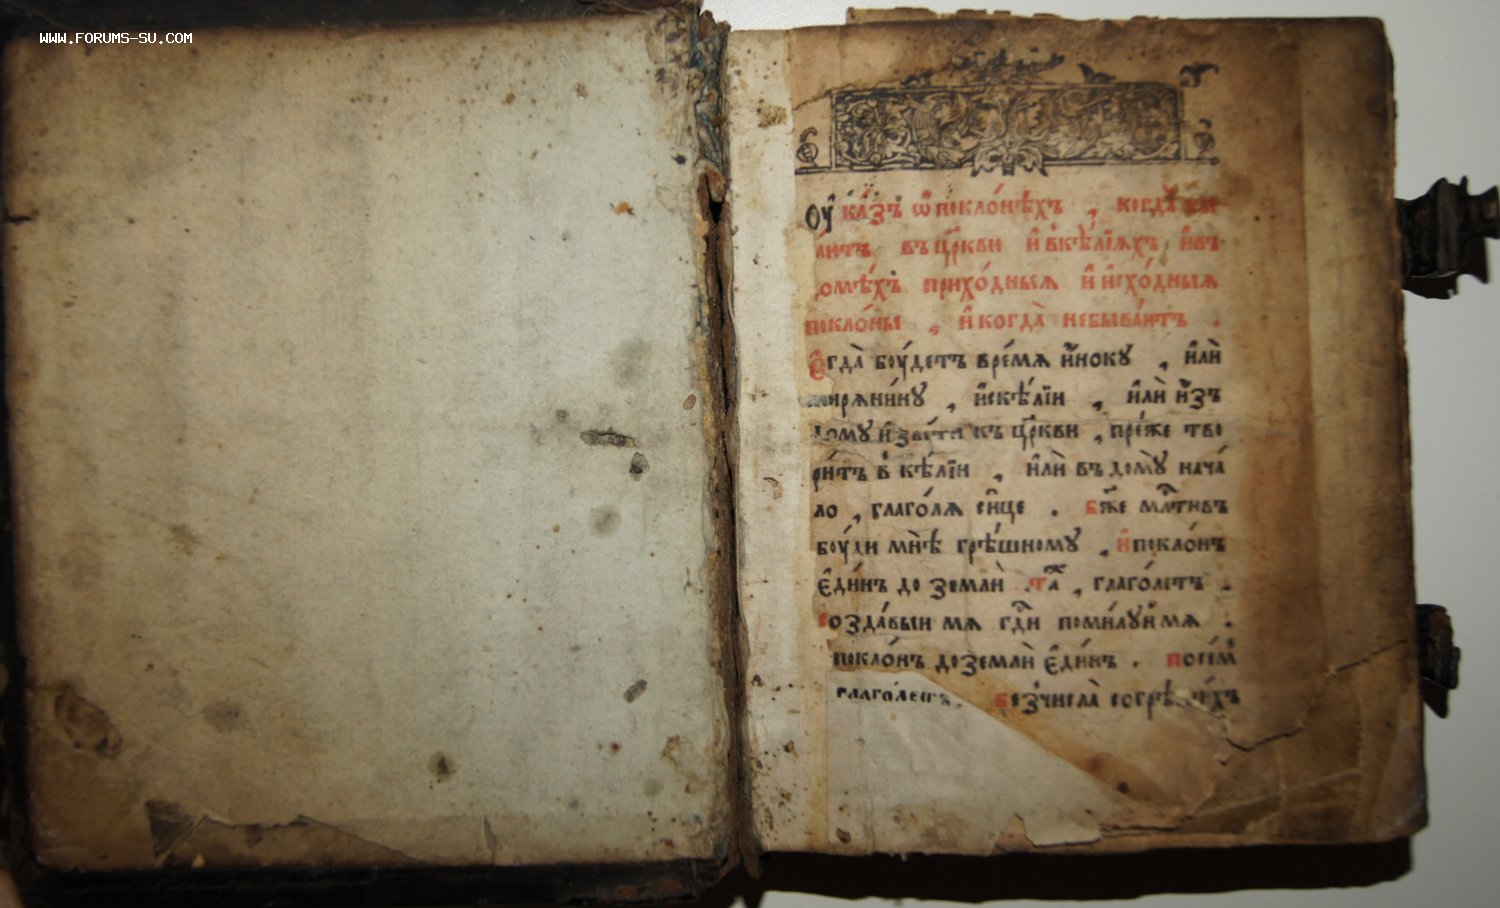 WWW.FORUMS-SU.COM
Оу҆ка́зъ ѡ҆ покло́нѣхъ , когда̀
въ цр҃кви и҆ в кѣ́лїѧхъ и҆ въ
домѣ́хъ прихо́дныѧ и҆ и҆схо́дныѧ
покло́ны , и҆ когда̀ небыва́ютъ .
Є҆гда̀ боу́детъ вре́мѧ и҆́ноку , и҆лѝ
мирѧни́ну , и҆скѣ́лїи , и҆лѝ и҆́зъ
дому и҆ къ цр҃кви , пре́же тво
ри́тъ в кѣ́лїи , и҆лѝ въ дому̀ нача́
ло , глаго́лѧ си́це . Бж҃е млⷭ҇тивъ
боу́ди мнѣ̀ грѣ́шному , и҆ покло́нъ
є҆ди́нъ до землѝ . Таⷤ , глаго́летъ .
Созда́выи мѧ гдⷭ҇и поми́луи мѧ .
покло́нъ до землѝ є҆ди́нъ . посе́мъ
глаго́летъ . Без числа̀ согрѣши́хъ